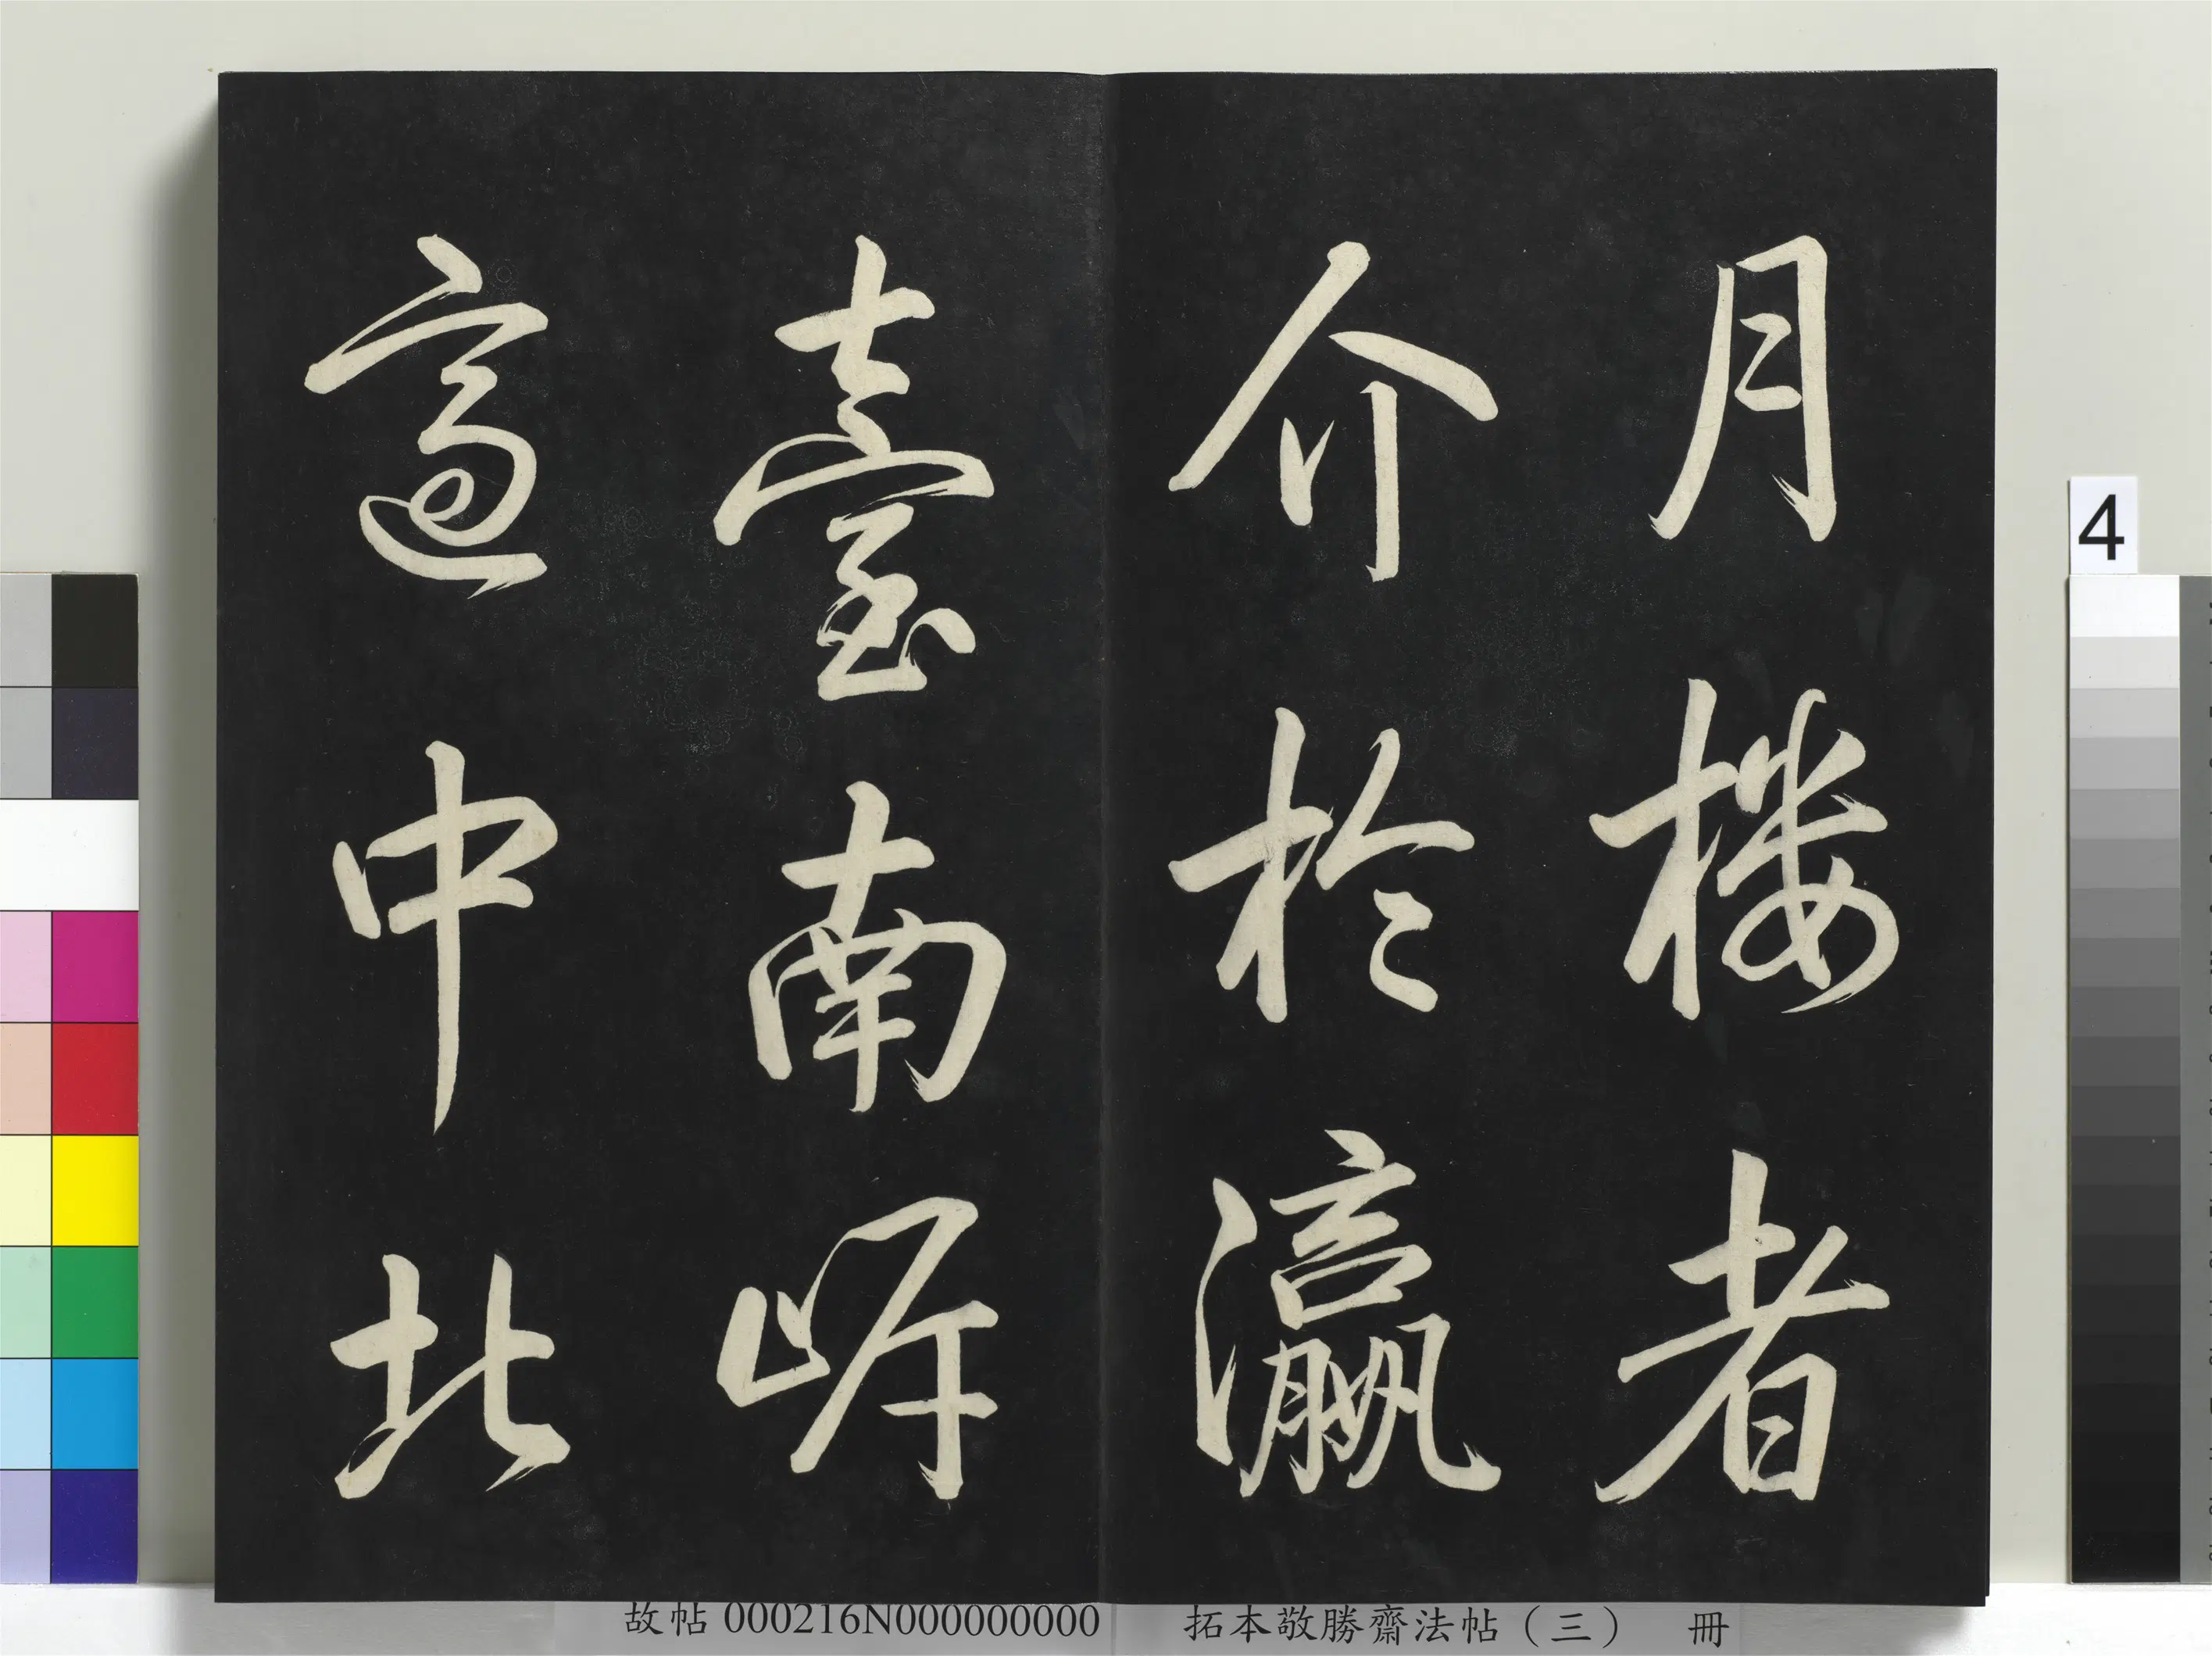 月樓者
介於瀛
臺南岸
適中北
4
故帖000216N000000000 拓本敬勝齋法帖（三） 冊